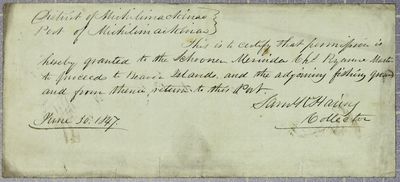 District of Michilimackinac
Port of Michilimackinac
This is to certify that permission is
hereby granted to the Schooner Merinda Master
to proceed to Beaver Islands, and the adjoining fishing ground
and from thence return to this Port.
Collector
June 30. 1847